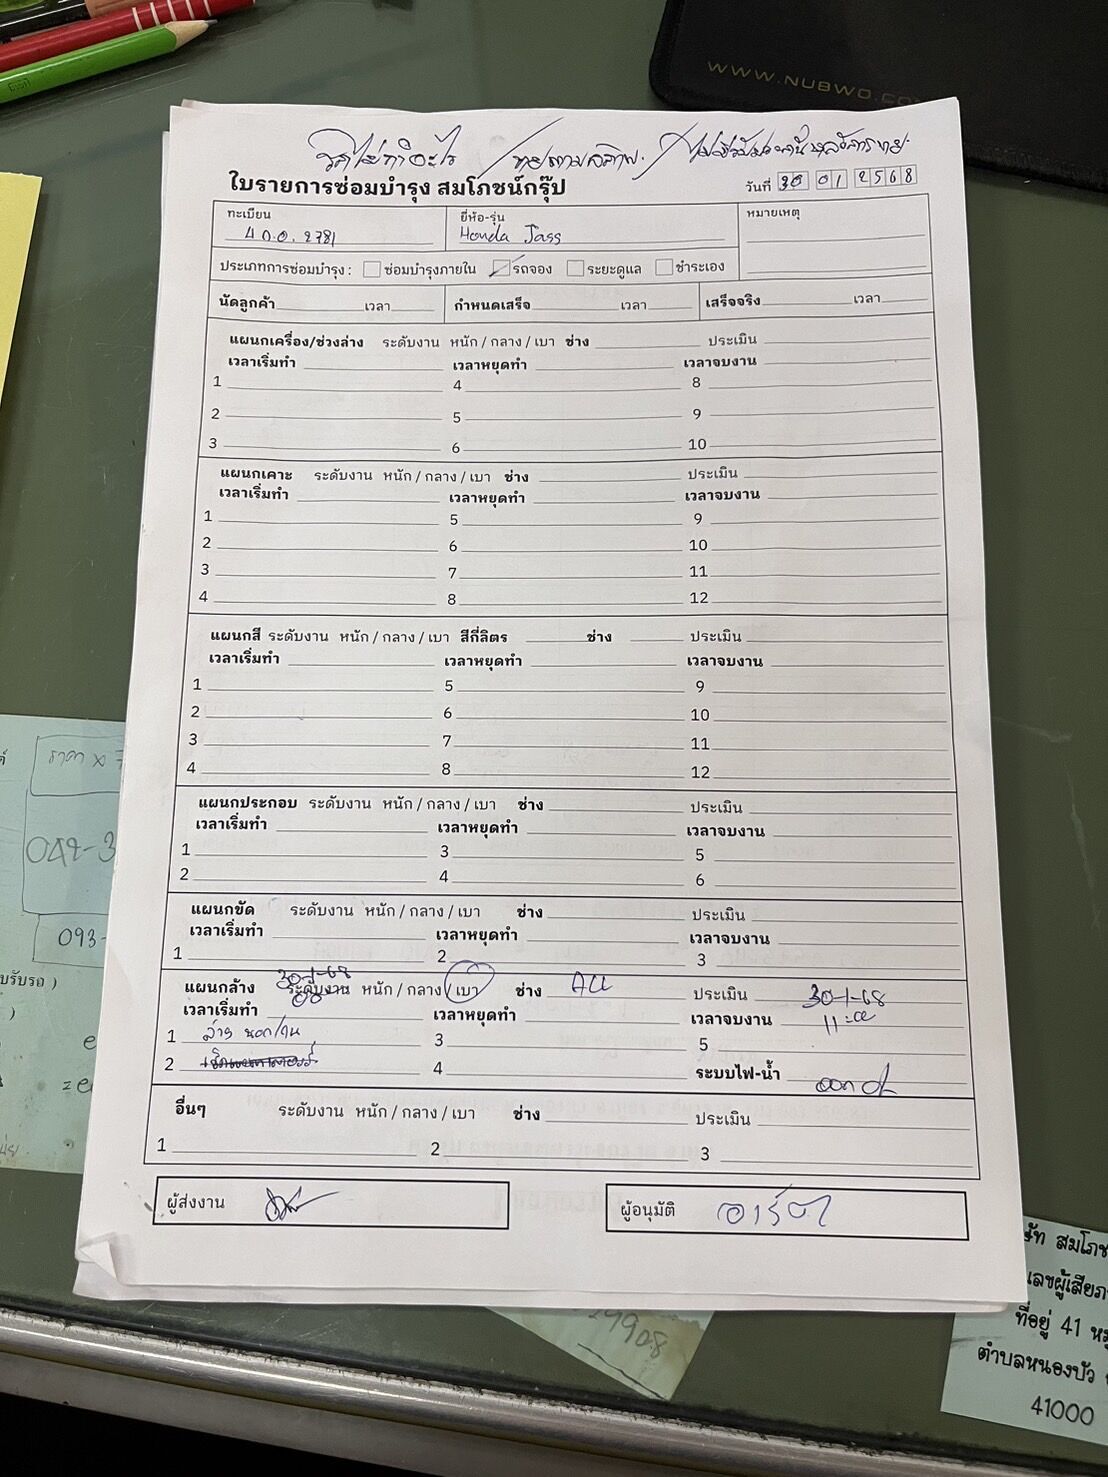 WWW.NUBWO.CO
รถไม่ทำอะไร / ขายตามสภาพ. /
ใบรายการซ่อมบำรุง สมโภชน์กรุ๊ป
วันที่ 30 01 2568
ทะเบียน
4 ก.อ. 2781
ยี่ห้อ-รุ่น
Honda Jass
หมายเหตุ
ประเภทการซ่อมบำรุง : ซ่อมบำรุงภายใน รถจอง ระยะดูแล ชำระเอง
นัดลูกค้า เวลา กำหนดเสร็จ เวลา เสร็จจริง เวลา
แผนกเครื่อง/ช่วงล่าง ระดับงาน หนัก / กลาง / เบา ช่าง ประเมิน
เวลาเริ่มทำ เวลาหยุดทำ เวลาจบงาน
1 4 8
2 5 9
3 6 10
แผนกเคาะ ระดับงาน หนัก / กลาง / เบา ช่าง ประเมิน
เวลาเริ่มทำ เวลาหยุดทำ เวลาจบงาน
1 5 9
2 6 10
3 7 11
4 8 12
แผนกสี ระดับงาน หนัก / กลาง / เบา สีกี่ลิตร ช่าง ประเมิน
เวลาเริ่มทำ เวลาหยุดทำ เวลาจบงาน
1 5 9
2 6 10
3 7 11
4 8 12
แผนกประกอบ ระดับงาน หนัก / กลาง / เบา ช่าง ประเมิน
เวลาเริ่มทำ เวลาหยุดทำ เวลาจบงาน
1 3 5
2 4 6
แผนกขัด ระดับงาน หนัก / กลาง / เบา ช่าง ประเมิน
เวลาเริ่มทำ เวลาหยุดทำ เวลาจบงาน
1 2 3
30-1-68
แผนกล้าง ระดับงาน หนัก / กลาง / เบา ช่าง ประเมิน 30-1-68
เวลาเริ่มทำ เวลาหยุดทำ เวลาจบงาน 11:00
1 ล้าง นอก/ใน 3 5
2 4 ระบบไฟ-น้ำ
อื่นๆ ระดับงาน หนัก / กลาง / เบา ช่าง ประเมิน
1 2 3
ผู้ส่งงาน
ผู้อนุมัติ
ราคา x 7
042-3
093-
บรับรถ )
19908
ษัท สมโภช
เลขผู้เสียภ
ที่อยู่ 41 หมู่
ตำบลหนองบัว
41000